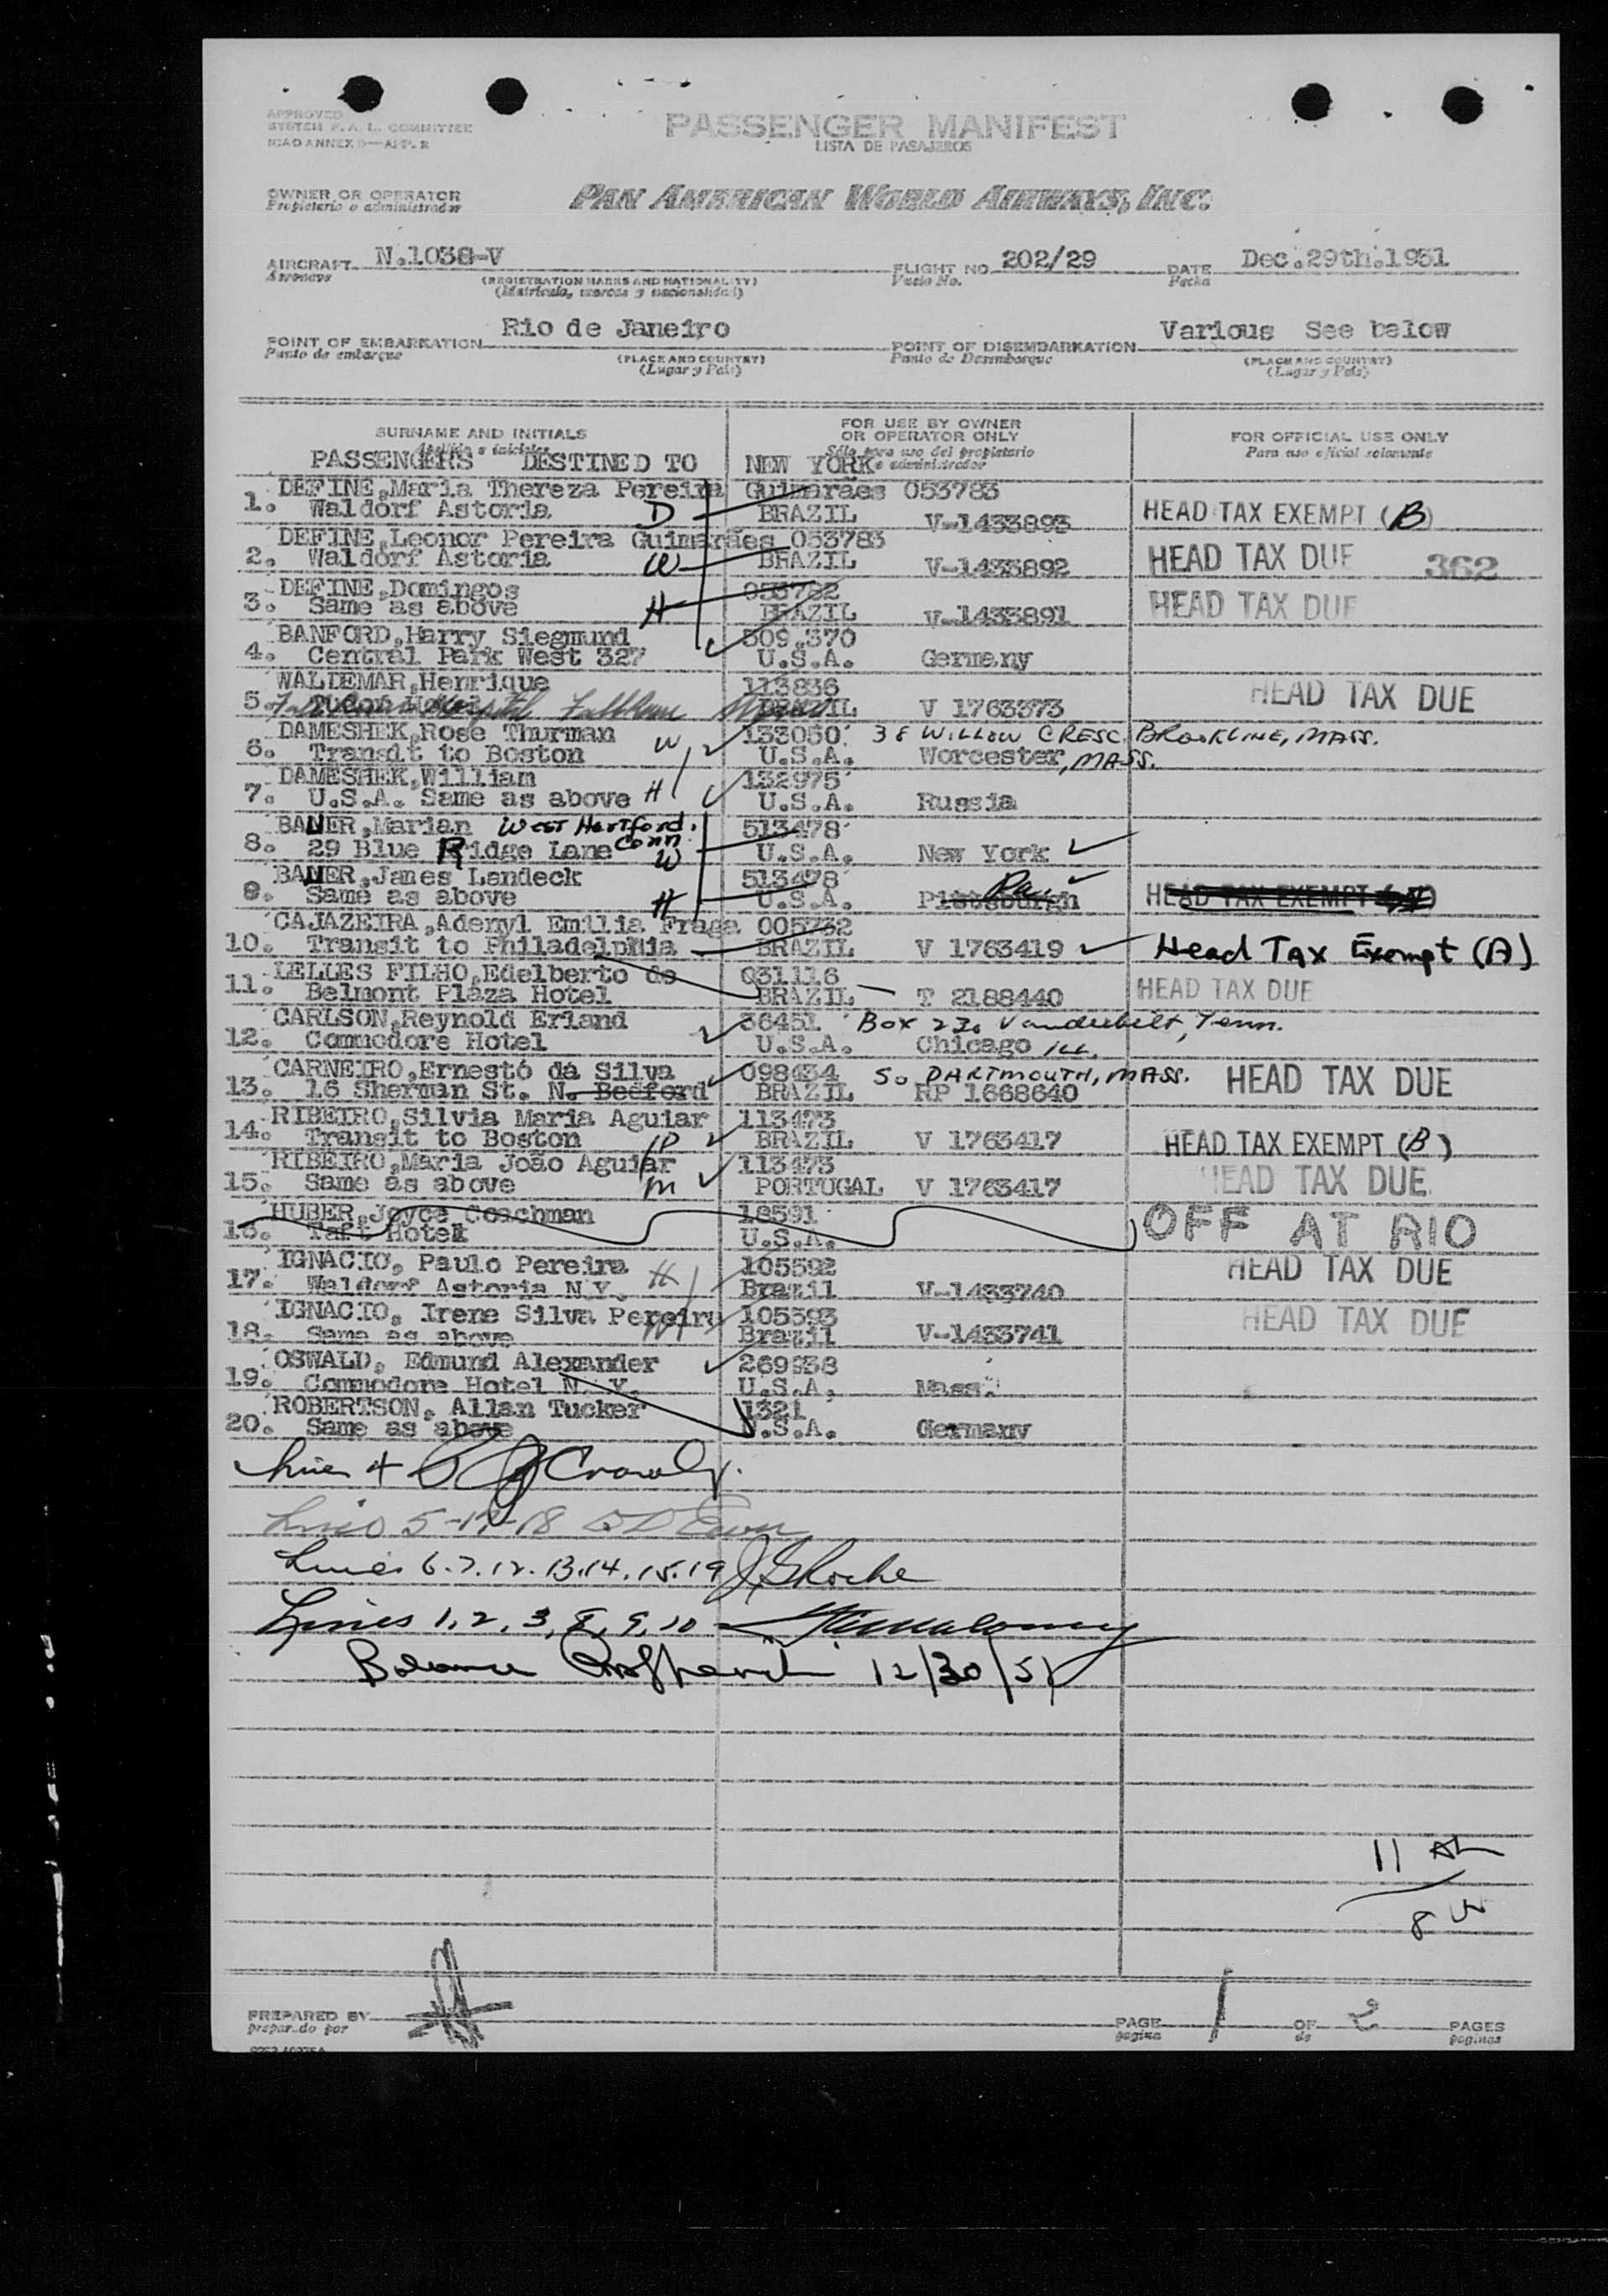 APPROVED
SYSTEM F. A. L. COMMITTEE
ICAO ANNEX 9—APP. 2
PASSENGER MANIFEST
LISTA DE PASAJEROS
OWNER OR OPERATOR
Propietario o administrador
PAN AMERICAN WORLD AIRWAYS, INC.
AIRCRAFT N.1038-V FLIGHT NO. 202/29 DATE Dec.29th.1951
Aeronave (REGISTRATION MARKS AND NATIONALITY) Vuelo No. Fecha
(Matrícula, marcas y nacionalidad)
POINT OF EMBARKATION Rio de Janeiro POINT OF DISEMBARKATION Various See below
Punto de embarque (PLACE AND COUNTRY) Punto de Desembarque (PLACE AND COUNTRY)
(Lugar y País) (Lugar y País)
SURNAME AND INITIALS FOR USE BY OWNER OR OPERATOR ONLY FOR OFFICIAL USE ONLY
Apellido e iniciales Sólo para uso del propietario o administrador Para uso oficial solamente
PASSENGERS DESTINED TO NEW YORK
DEFINE,Maria Thereza Pereira Guimarães 053783
1. Waldorf Astoria D BRAZIL V-1433893 HEAD TAX EXEMPT (B)
DEFINE,Leonor Pereira Guimarães 053783
2. Waldorf Astoria W BRAZIL V-1433892 HEAD TAX DUE 362
DEFINE,Domingos 053782
3. Same as above H BRAZIL V-1433891 HEAD TAX DUE
BANFORD,Harry Siegmund 509.370
4. Central Park West 327 U.S.A. Germany
WALDEMAR,Henrique 113836
5. Hospital BRAZIL V 1763373 HEAD TAX DUE
DAMESHEK,Rose Thurman 133050 38 WILLOW CRESC. BROOKLINE, MASS.
6. Transit to Boston W U.S.A. Worcester, MASS.
DAMESHEK,William 132975
7. U.S.A. Same as above H U.S.A. Russia
BAUER,Marian West Hartford. Conn. 513478
8. 29 Blue Ridge Lane W U.S.A. New York
BAUER,James Landeck 513478
9. Same as above H U.S.A. Pittsburgh HEAD TAX EXEMPT
CAJAZEIRA,Adenyl Emilia Fraga 005732
10. Transit to Philadelphia BRAZIL V 1763419 Head Tax Exempt (A)
LELLES FILHO,Edelberto de 031116
11. Belmont Plaza Hotel BRAZIL T 2188440 HEAD TAX DUE
CARLSON,Reynold Erland 36451 Box 230 Vanderbelt, Tenn.
12. Commodore Hotel U.S.A. Chicago Ill.
CARNEIRO,Ernestó da Silva 098434 SO DARTMOUTH, MASS.
13. 16 Sherman St. N. Bedford BRAZIL RP 1668640 HEAD TAX DUE
RIBEIRO,Silvia Maria Aguiar 113473
14. Transit to Boston D BRAZIL V 1763417 HEAD TAX EXEMPT (B)
RIBEIRO,Maria João Aguiar 113473
15. Same as above M PORTUGAL V 1763417 HEAD TAX DUE
HUBER,Joyce Coachman 18591
16. Taft Hotel U.S.A. OFF AT RIO
IGNACIO, Paulo Pereira 105592
17. Waldorf Astoria N.Y. H Brazil V-1433740 HEAD TAX DUE
IGNACIO, Irene Silva Pereira 105593
18. Same as above W Brazil V-1433741 HEAD TAX DUE
OSWALD, Edmund Alexander 269938
19. Commodore Hotel N.Y. U.S.A. Mass.
ROBERTSON, Allan Tucker 1321
20. Same as above U.S.A. Germany
Line 4
Lines 5-17-18
Lines 6.7.12.13.14.15.19 J. G. Roche
Lines 1,2,3,8,9,10
Balance 12/30/51
11
8
PREPARED BY PAGE 1 OF 2 PAGES
preparado por página de páginas